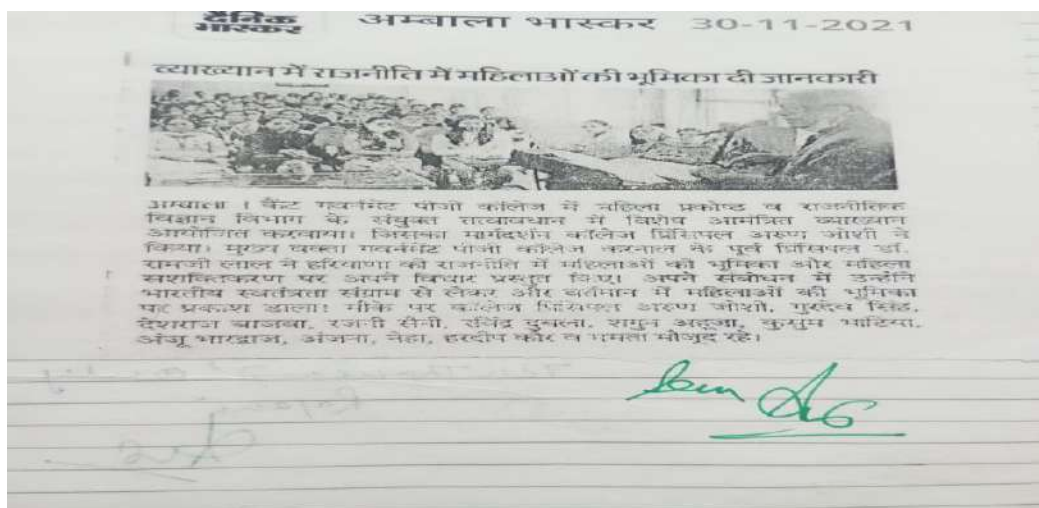 दैनिक भास्कर अम्बाला भास्कर 30-11-2021
व्याख्यान में राजनीति में महिलाओं की भूमिका दी जानकारी
अम्बाला । कैंट गवर्नमेंट पीजी कॉलेज में महिला प्रकोष्ठ व राजनीतिक
विज्ञान विभाग के संयुक्त तत्वावधान में विशेष आमंत्रित व्याख्यान
आयोजित करवाया। जिसका मार्गदर्शन कॉलेज प्रिंसिपल अरुण जोशी ने
किया। मुख्य वक्ता गवर्नमेंट पीजी कॉलेज करनाल के पूर्व प्रिंसिपल डॉ.
रामजी लाल ने हरियाणा की राजनीति में महिलाओं की भूमिका और महिला
सशक्तिकरण पर अपने विचार प्रस्तुत किए। अपने संबोधन में उन्होंने
भारतीय स्वतंत्रता संग्राम से लेकर और वर्तमान में महिलाओं की भूमिका
पर प्रकाश डाला। मौके पर कॉलेज प्रिंसिपल अरुण जोशी, गुरदेव सिंह,
देशराज बाजवा, रजनी सैनी, रविंद्र, शगुन आहूजा, कुसुम भाटिया,
अंजू भारद्वाज, अंजना, नेहा, हरदीप कौर व ममता मौजूद रहे।